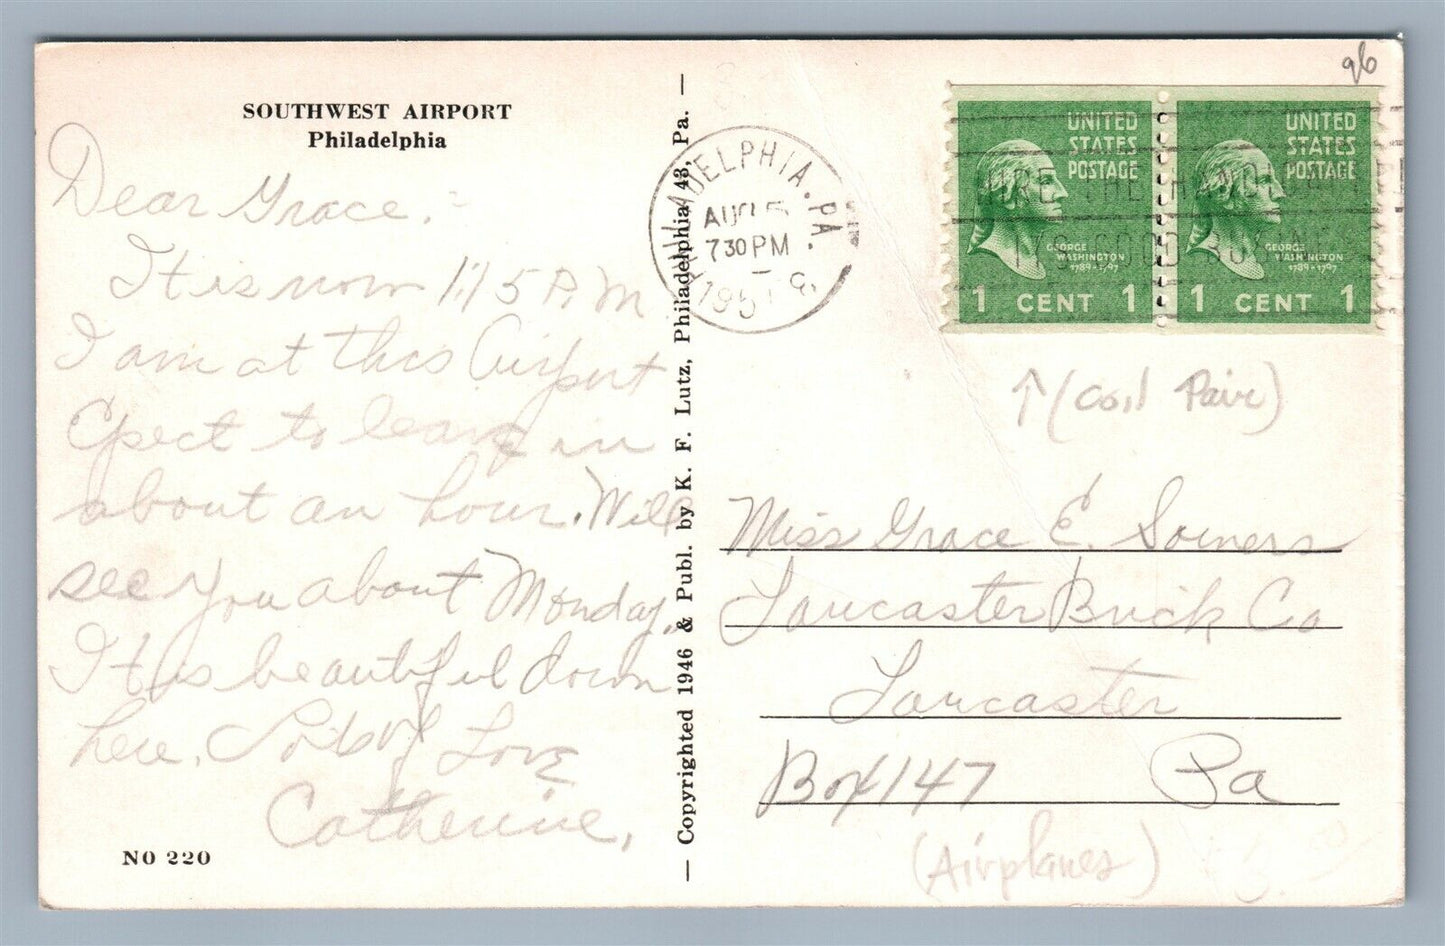 SOUTHWEST AIRPORT
Philadelphia
Dear Grace.
It is now 1:15 P.M
I am at this Airport
Epect to leave in
about an hour. Will
see You about Monday.
It is beautiful down
here. So
Love
Catherine,
NO 220
— Copyrighted 1946 & Publ. by K. F. Lutz, Philadelphia 43, Pa. —
PHILADELPHIA, PA.
AUG
730 PM
195
UNITED
STATES
POSTAGE
GEORGE
WASHINGTON
1789-1797
1 CENT 1
UNITED
STATES
POSTAGE
GEORGE
WASHINGTON
1789-1797
1 CENT 1
HIRE THE HANDICAPPED
IT'S GOOD BUSINESS
96
↑ (Coil Pair)
Miss Grace E. Somers
Lancaster Brick Co
Lancaster
Box 147 Pa
(Airplanes)